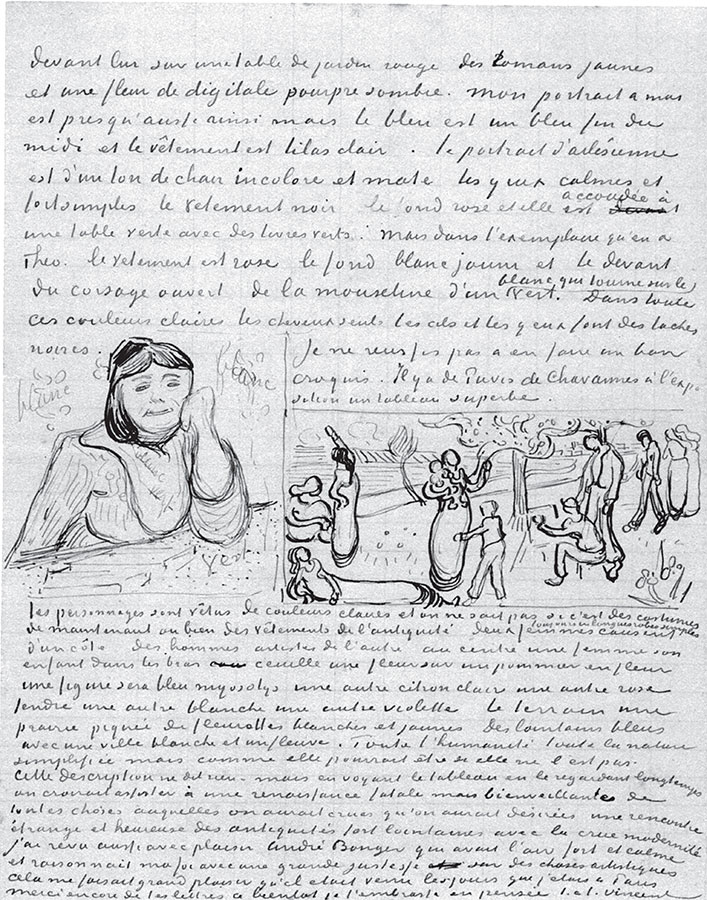 devant lui sur une table de jardin rouge des romans jaunes
et une fleur de digitale pourpre sombre. mon portrait a moi
est presqu'aussi ainsi mais le bleu est un bleu fin du
midi et le vêtement est lilas clair. le portrait d'arlésienne
est d'un ton de chair incolore et mate les yeux calmes et
fort simples le vetement noir le fond rose et elle est accoudée à
une table verte avec des livres verts. mais dans l'exemplaire qu'en a
Theo. le vetement est rose le fond blanc jaune et le devant
du corsage ouvert de la mousseline d'un blanc qui tourne sur le vert. Dans toute
ces couleurs claires les cheveux seuls les cils et les yeux font des taches
noires.
Je ne reussis pas a en faire un bon
croquis. Il y a de Puvis de Chavannes à l'expo
sition un tableau superbe.
blanc
blanc
vert
les personnages sont vêtus de couleurs claires et on ne sait pas si c'est des costumes
de maintenant ou bien des vêtements de l'antiquité deux femmes causent
d'un côté des hommes artistes de l'autre au centre une femme son
enfant dans les bras cueille une fleur sur un pommier en fleur
une figure sera bleu myosotys une autre citron clair une autre rose
tendre une autre blanche une autre violette le terrain une
prairie piquée de fleurettes blanches et jaunes Des lointains bleus
avec une ville blanche et un fleuve. Toute l'humanité toute la nature
simplifiée mais comme elle pourrait être si elle ne l'est pas.
Cette description ne dit rien - mais en voyant le tableau en le regardant longtemps
on croirait assister à une renaissance totale mais bienveillante de
toutes choses auxquelles on aurait crues qu'on aurait désirées une rencontre
étrange et heureuse des antiquités fort lointaines avec la crue modernité
j'ai revu aussi avec plaisir André Bonger qui avait l'air fort et calme
et raisonnait ma foi avec une grande justesse sur des choses artistiques
cela me faisait grand plaisir qu'il etait venu les jours que j'etais a Paris
merci encore de tes lettres a bientot je t'embrasse en pensée t.à t. Vincent